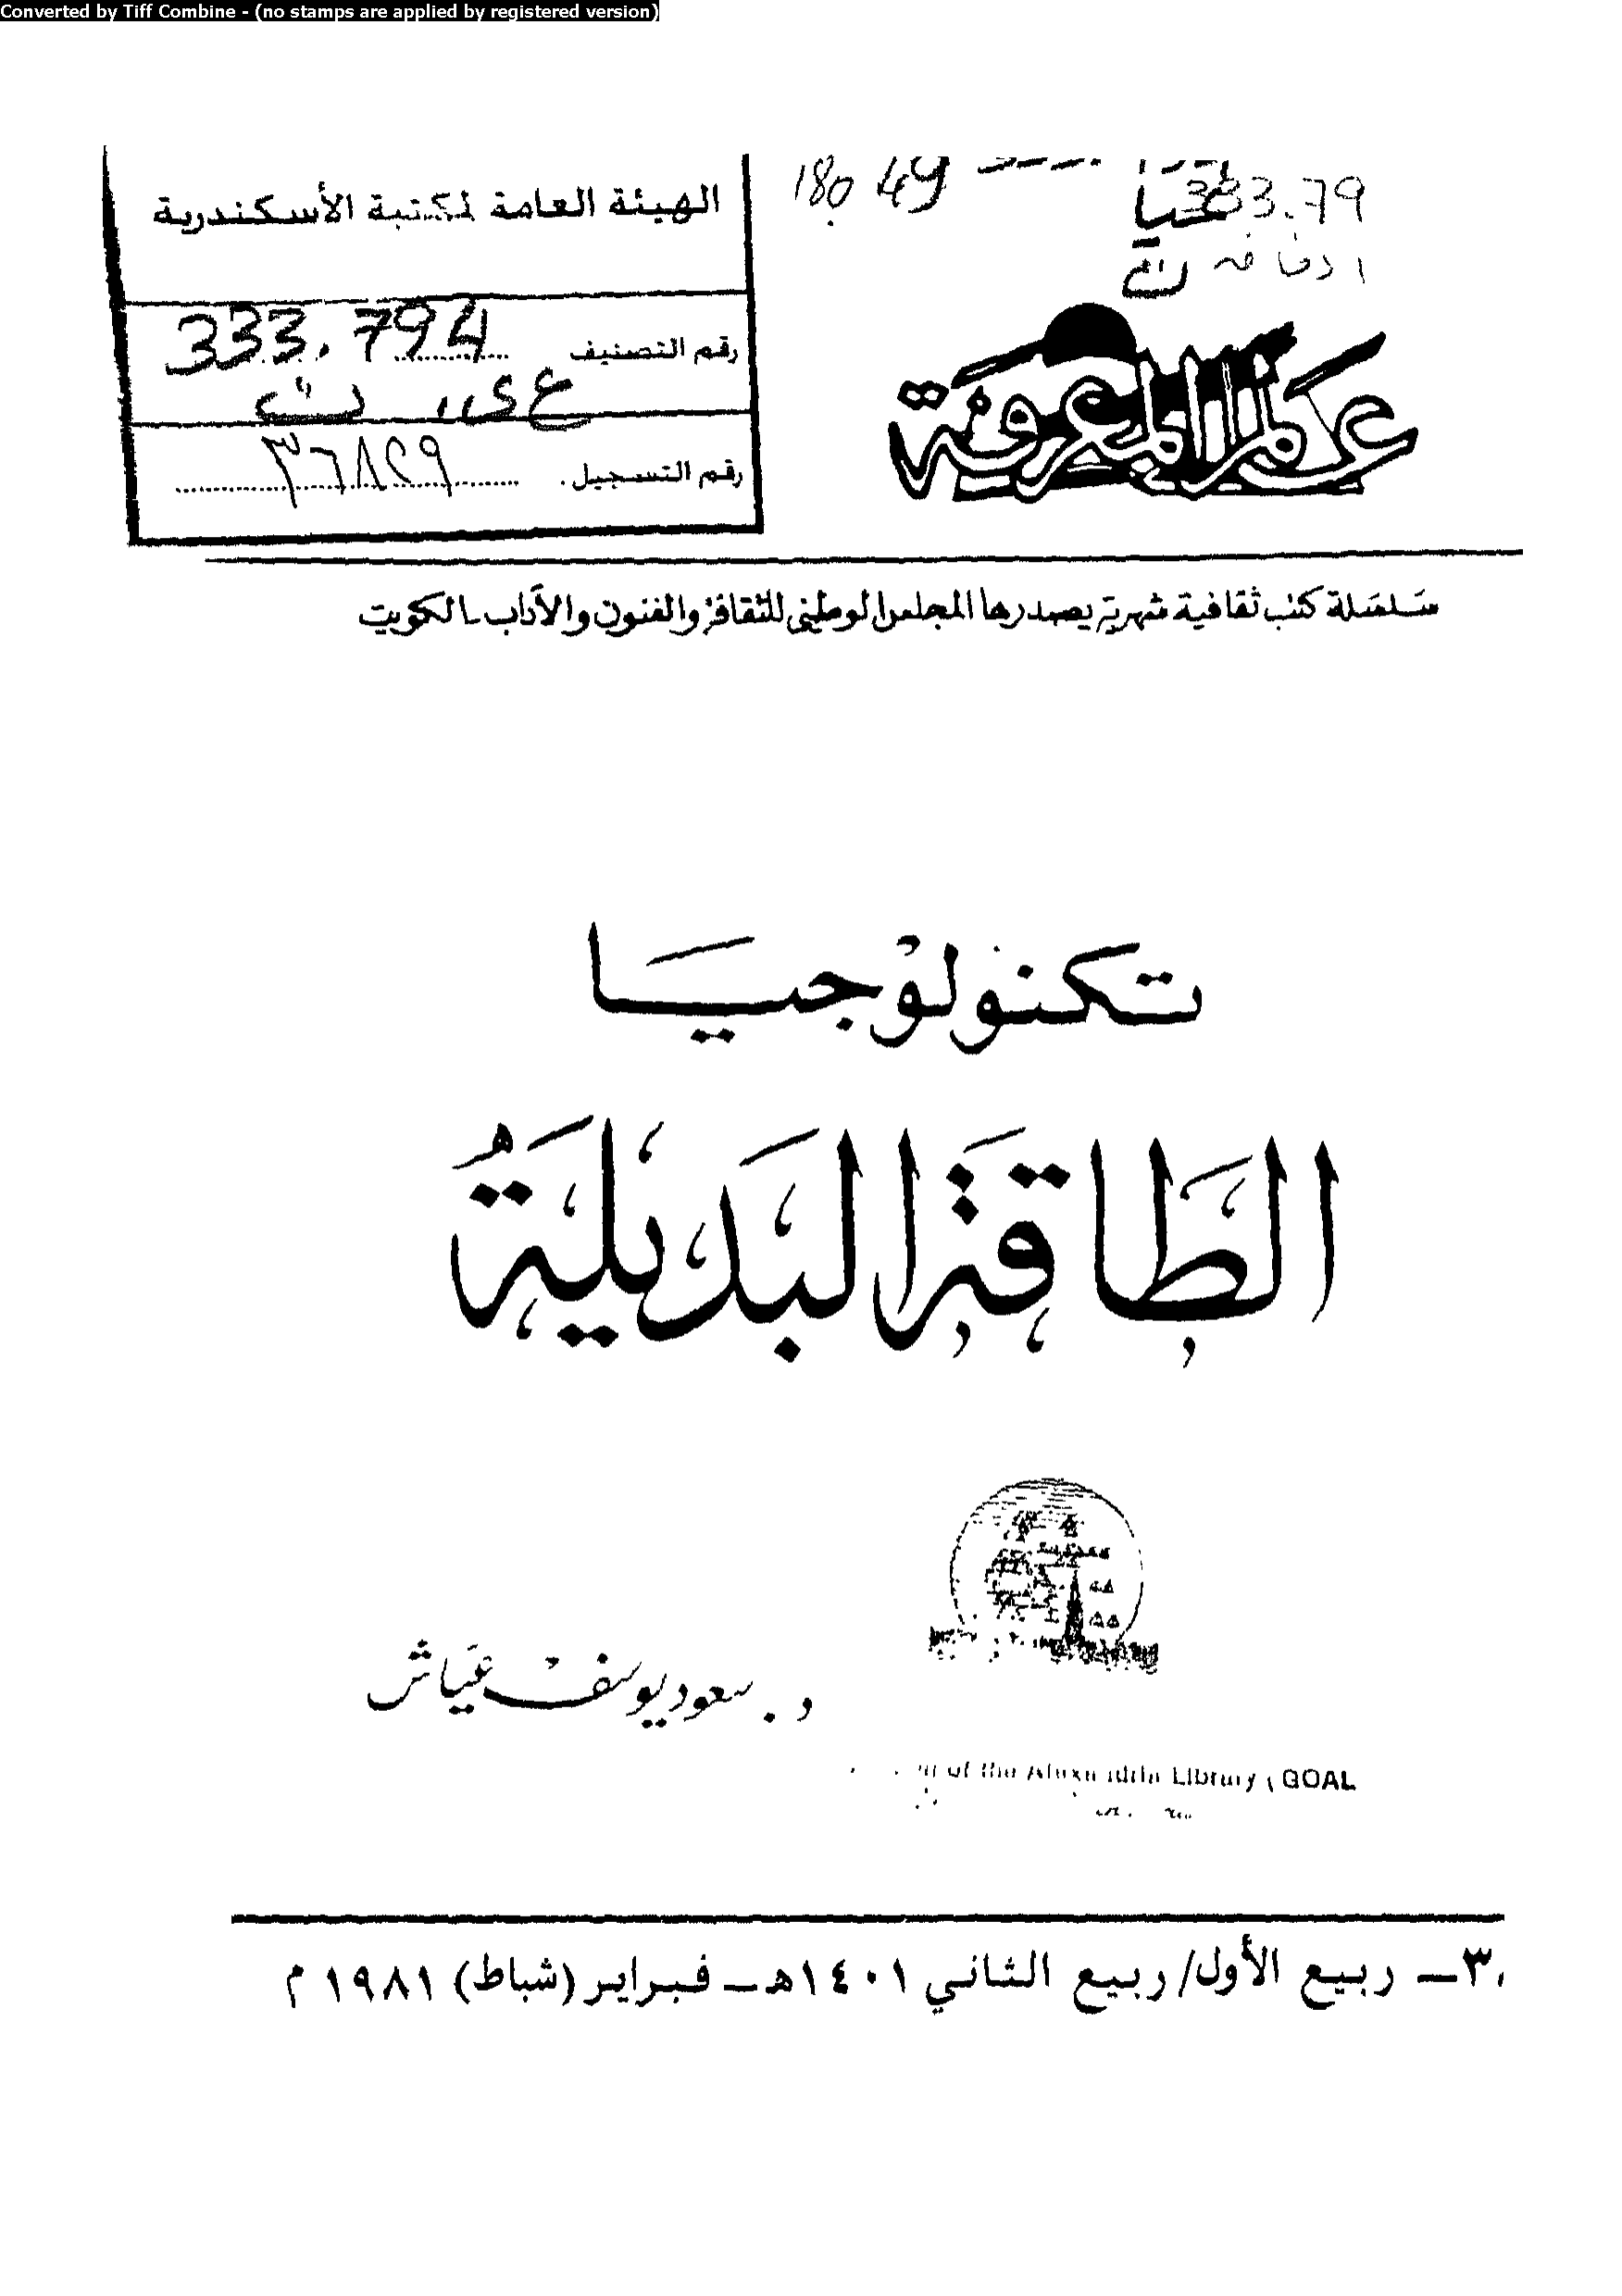 Converted by Tiff Combine - (no stamps are applied by registered version)
الهيئة العامة لمكتبة الأسكندرية
رقم التصنيف 333.794
رقم التسجيل ٣٦٨٢٩
180 49
333.79
عالم المعرفة
سلسلة كتب ثقافية شهرية يصدرها المجلس الوطني للثقافة والفنون والآداب - الكويت
تكنولوجيا
الطَّاقَةِ البَدِيلَةُ
د. سعود يوسف عيّاش
of the Alexandria Library ( GOAL
٣٠ـ ربيع الأول/ ربيع الثاني ١٤٠١هـ ـ فبراير (شباط) ١٩٨١ م